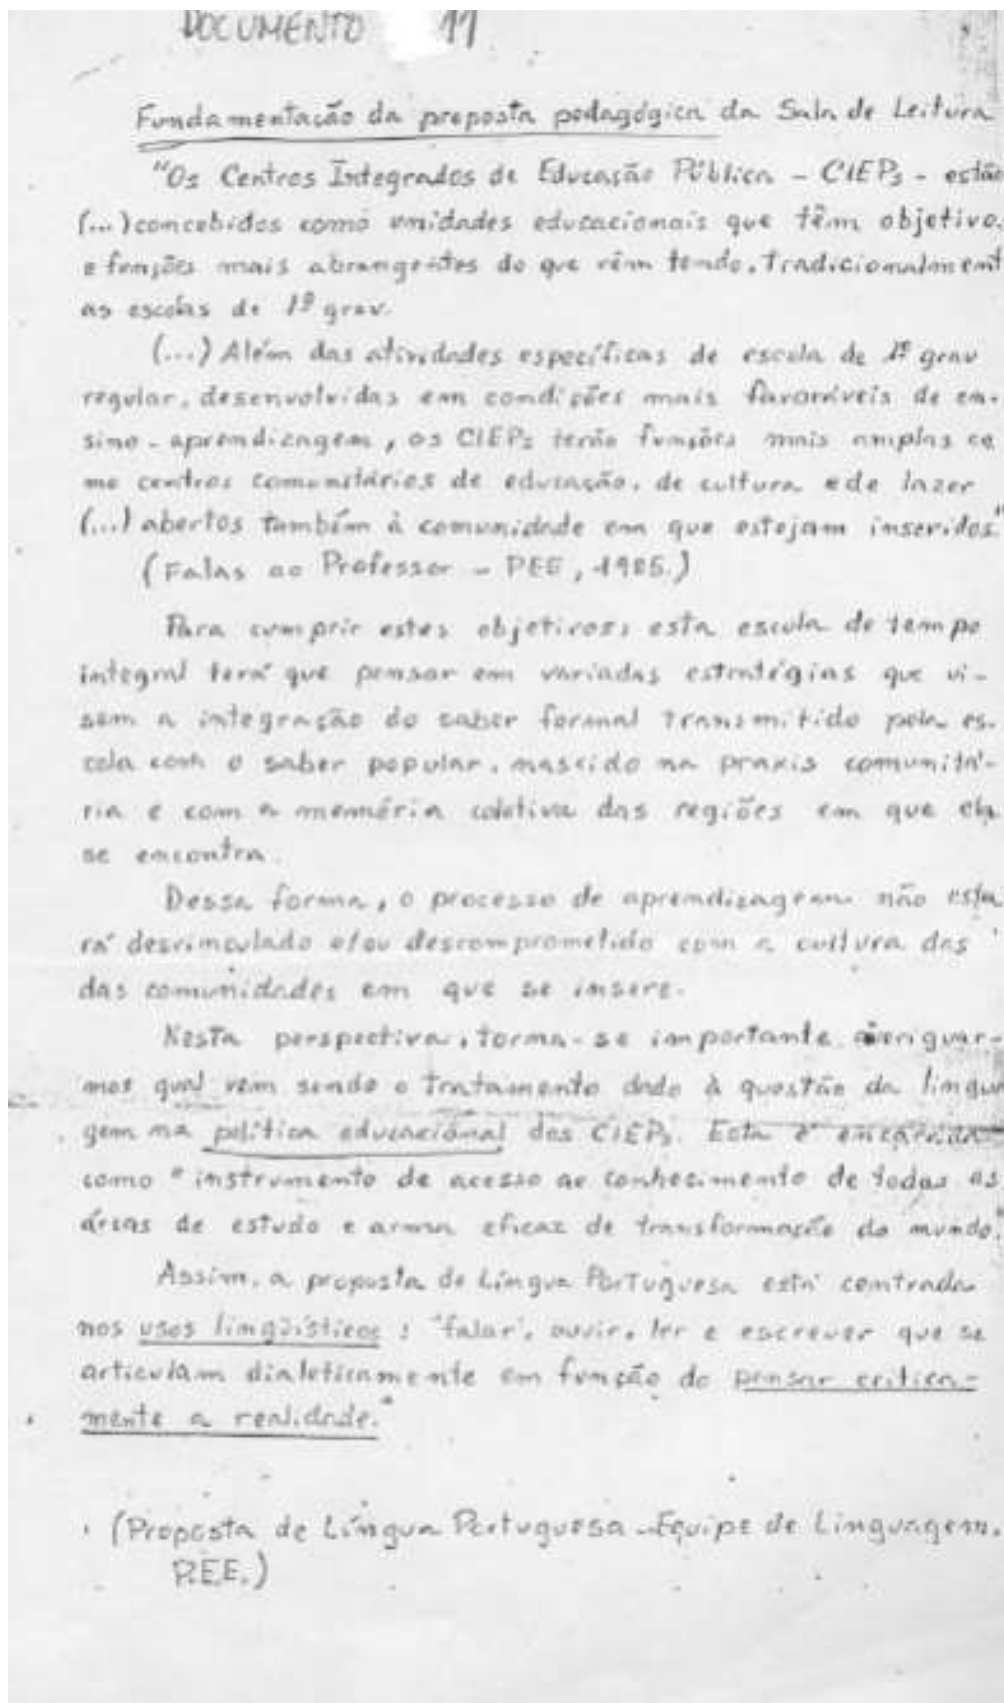 DOCUMENTO 11
Fundamentação da proposta pedagógica da Sala de Leitura
"Os Centros Integrados de Educação Pública - CIEPs - estão
(...) concebidos como unidades educacionais que têm objetivo,
e funções mais abrangentes do que vêm tendo, tradicionalment
as escolas de 1º grau.
(...) Além das atividades específicas de escola de 1º grau
regular, desenvolvidas em condições mais favoráveis de en-
sino-aprendizagem, os CIEPs terão funções mais amplas co
mo centros comunitários de educação, de cultura e de lazer
(...) abertos também à comunidade em que estejam inseridos"
(Falas ao Professor - PEE, 1985.)
Para cumprir estes objetivos, esta escola de tempo
integral terá que pensar em variadas estratégias que vi-
sem a integração do saber formal transmitido pela es-
cola com o saber popular, nascido na praxis comunitá-
ria e com a memória coletiva das regiões em que ela
se encontra.
Dessa forma, o processo de aprendizagem não esta
rá desvinculado e/ou descomprometido com a cultura das
das comunidades em que se insere.
Nesta perspectiva, torna-se importante averiguar-
mos qual vem sendo o tratamento dado à questão da lingua
gem na política educacional dos CIEPs. Esta é encarada
como "instrumento de acesso ao conhecimento de todas as
áreas de estudo e arma eficaz de transformação do mundo."
Assim, a proposta de Língua Portuguesa está centrada
nos usos lingüísticos: "falar, ouvir, ler e escrever que se
articulam dialeticamente em função do pensar critica-
mente a realidade."
(Proposta de Língua Portuguesa - Equipe de Linguagem.
P.E.E.)